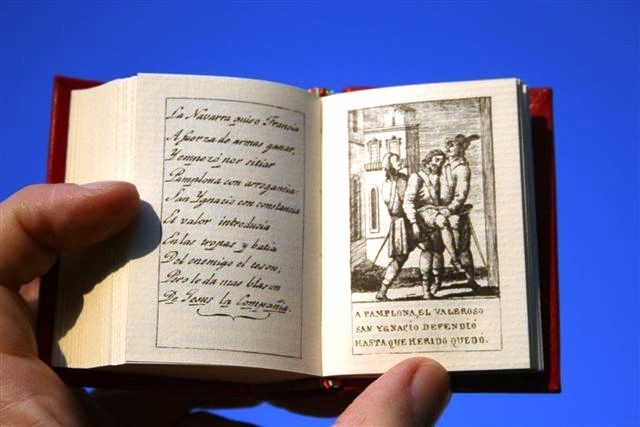 La Navarra quiso Francia
A fuerza de armas ganar,
Y empezó por sitiar
Pamplona con arrogancia.
San Ygnacio con constancia
El valor introducia
En las tropas y batia
Del enemigo el teson;
Pero le da mas blason
De Jesus la Compañia.
A PAMPLONA, EL VALEROSO
SAN YGNACIO DEFENDIO
HASTA QUE HERIDO QUEDO.